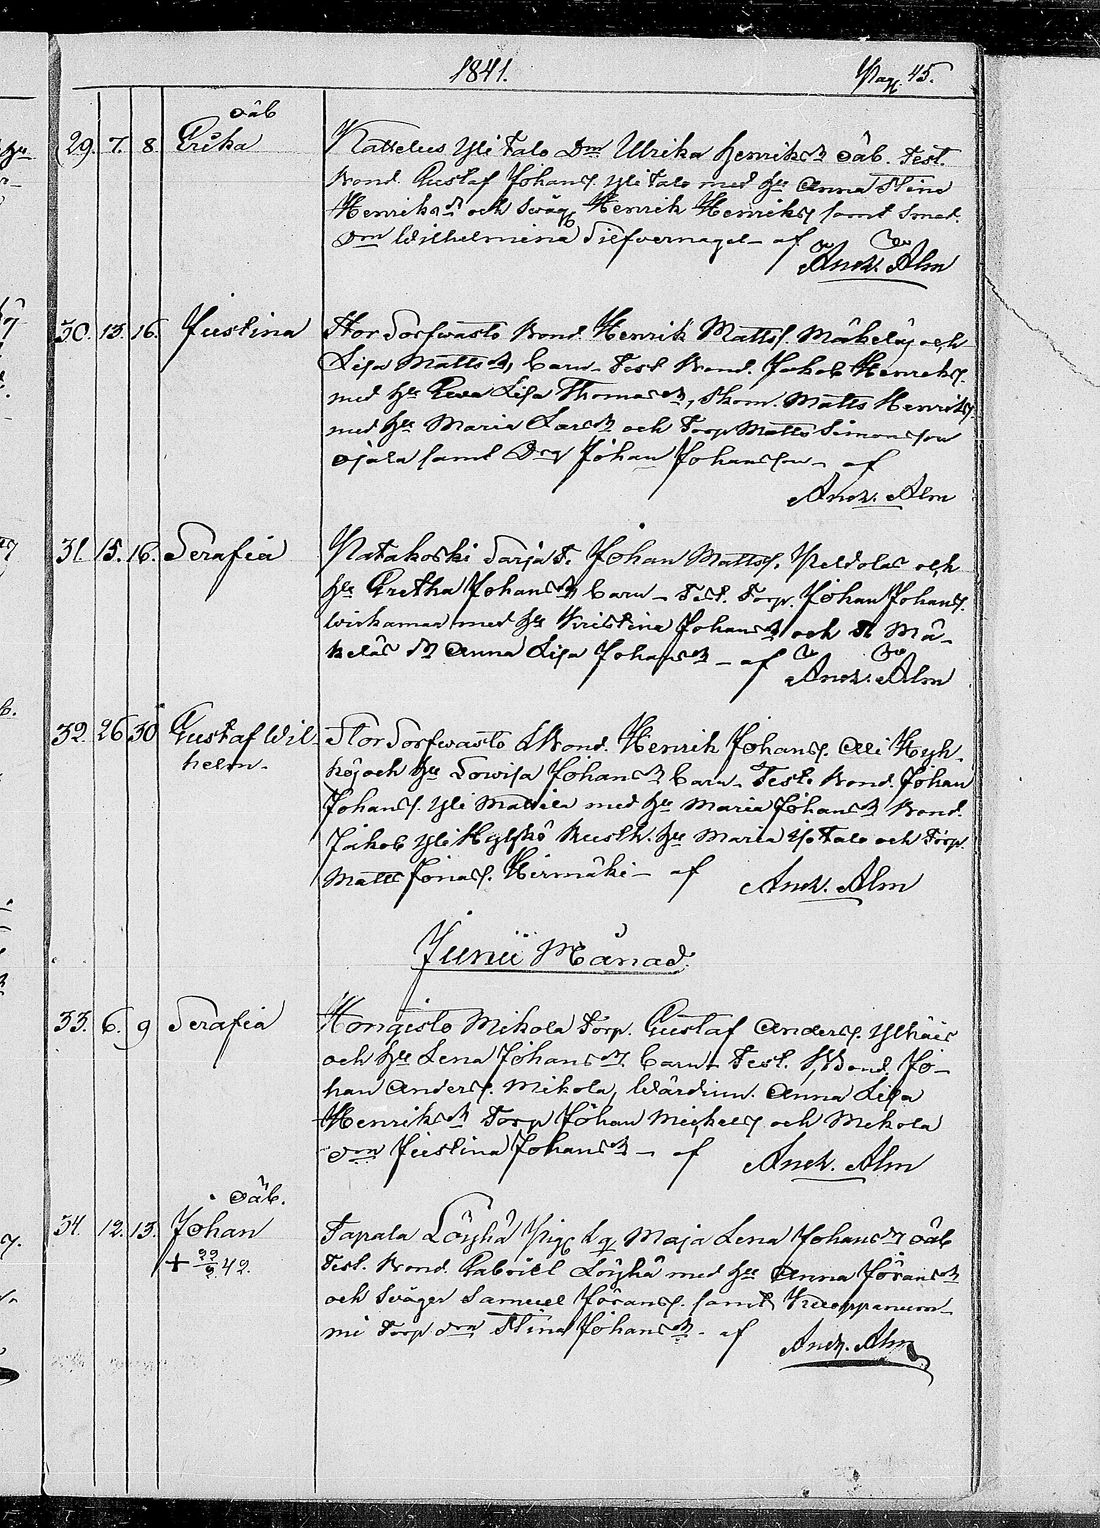 1841.
Pag. 45.
oäb
29. 7. 8. Erika
Kattelus Yli Talo Dm Ulrika Henriksdr oäb. Test.
Bond. Gustaf Johanss. Yli Talo med hu Anna Stina
Henriksdr och Swåg. Henrik Henrikss. samt Smed.
Dm Wilhelmina Silfvernagel – af
And. Alm
30. 13. 16. Justina
Stor Sorfwasto Bond. Henrik Mattss. Mäkeläj och
Lisa Mattsdr, barn – Test Bond. Jakob Henrikss.
med hu Ewa Lisa Thomasdr, Skom. Matts Henrikss.
med hu Maria Larsdr och Torp Matts Simonsson
Ojala samt Drg Johan Johansson – af
And. Alm
31. 15. 16. Serafia
Patakoski Johan Mattss. Peldolas och
hu Gretha Johansdr barn – Test. Torp. Johan Johanss.
Wirkamas med hu Kristina Johansdr och Mä-
keläs dr Anna Lisa Johansdr – af And. Alm
32. 26 30 Gustaf Wil-
helm.
Stor Sorfwasto Bond. Henrik Johanss. Ali Hyh-
köj och hu Lowisa Johansdr barn – Test. Bond. Johan
Johanss. Yli Mattila med hu Maria Johansdr Bond.
Jakob Yli Hyhkö Rusth. hu Maria Iso Talo och Torp.
Matts Jonass. Kirmäki – af And. Alm
Junii Månad
33. 6. 9 Serafia
Hongisto Mikola Torp. Gustaf Anderss. Ylhäis
och hu Lena Johansdr barn Test. Bond. Jo-
han Anderss. Mikola, Wärdinn. Anna Lisa
Henriksdr Torp Johan Michelss och Mikola
dm Justina Johansdr – af And. Alm
oäb.
34. 12. 13. Johan
+ 22/3 42.
Tapala Löyhä Pig. Maja Lena Johansdr oäb
Test. Bond. Gabriel Löyhä med hu Anna Göransdr
och Swåger Samuel Görans. samt Knuppanum-
mi Torp dm Stina Johansdr – af And. Alm